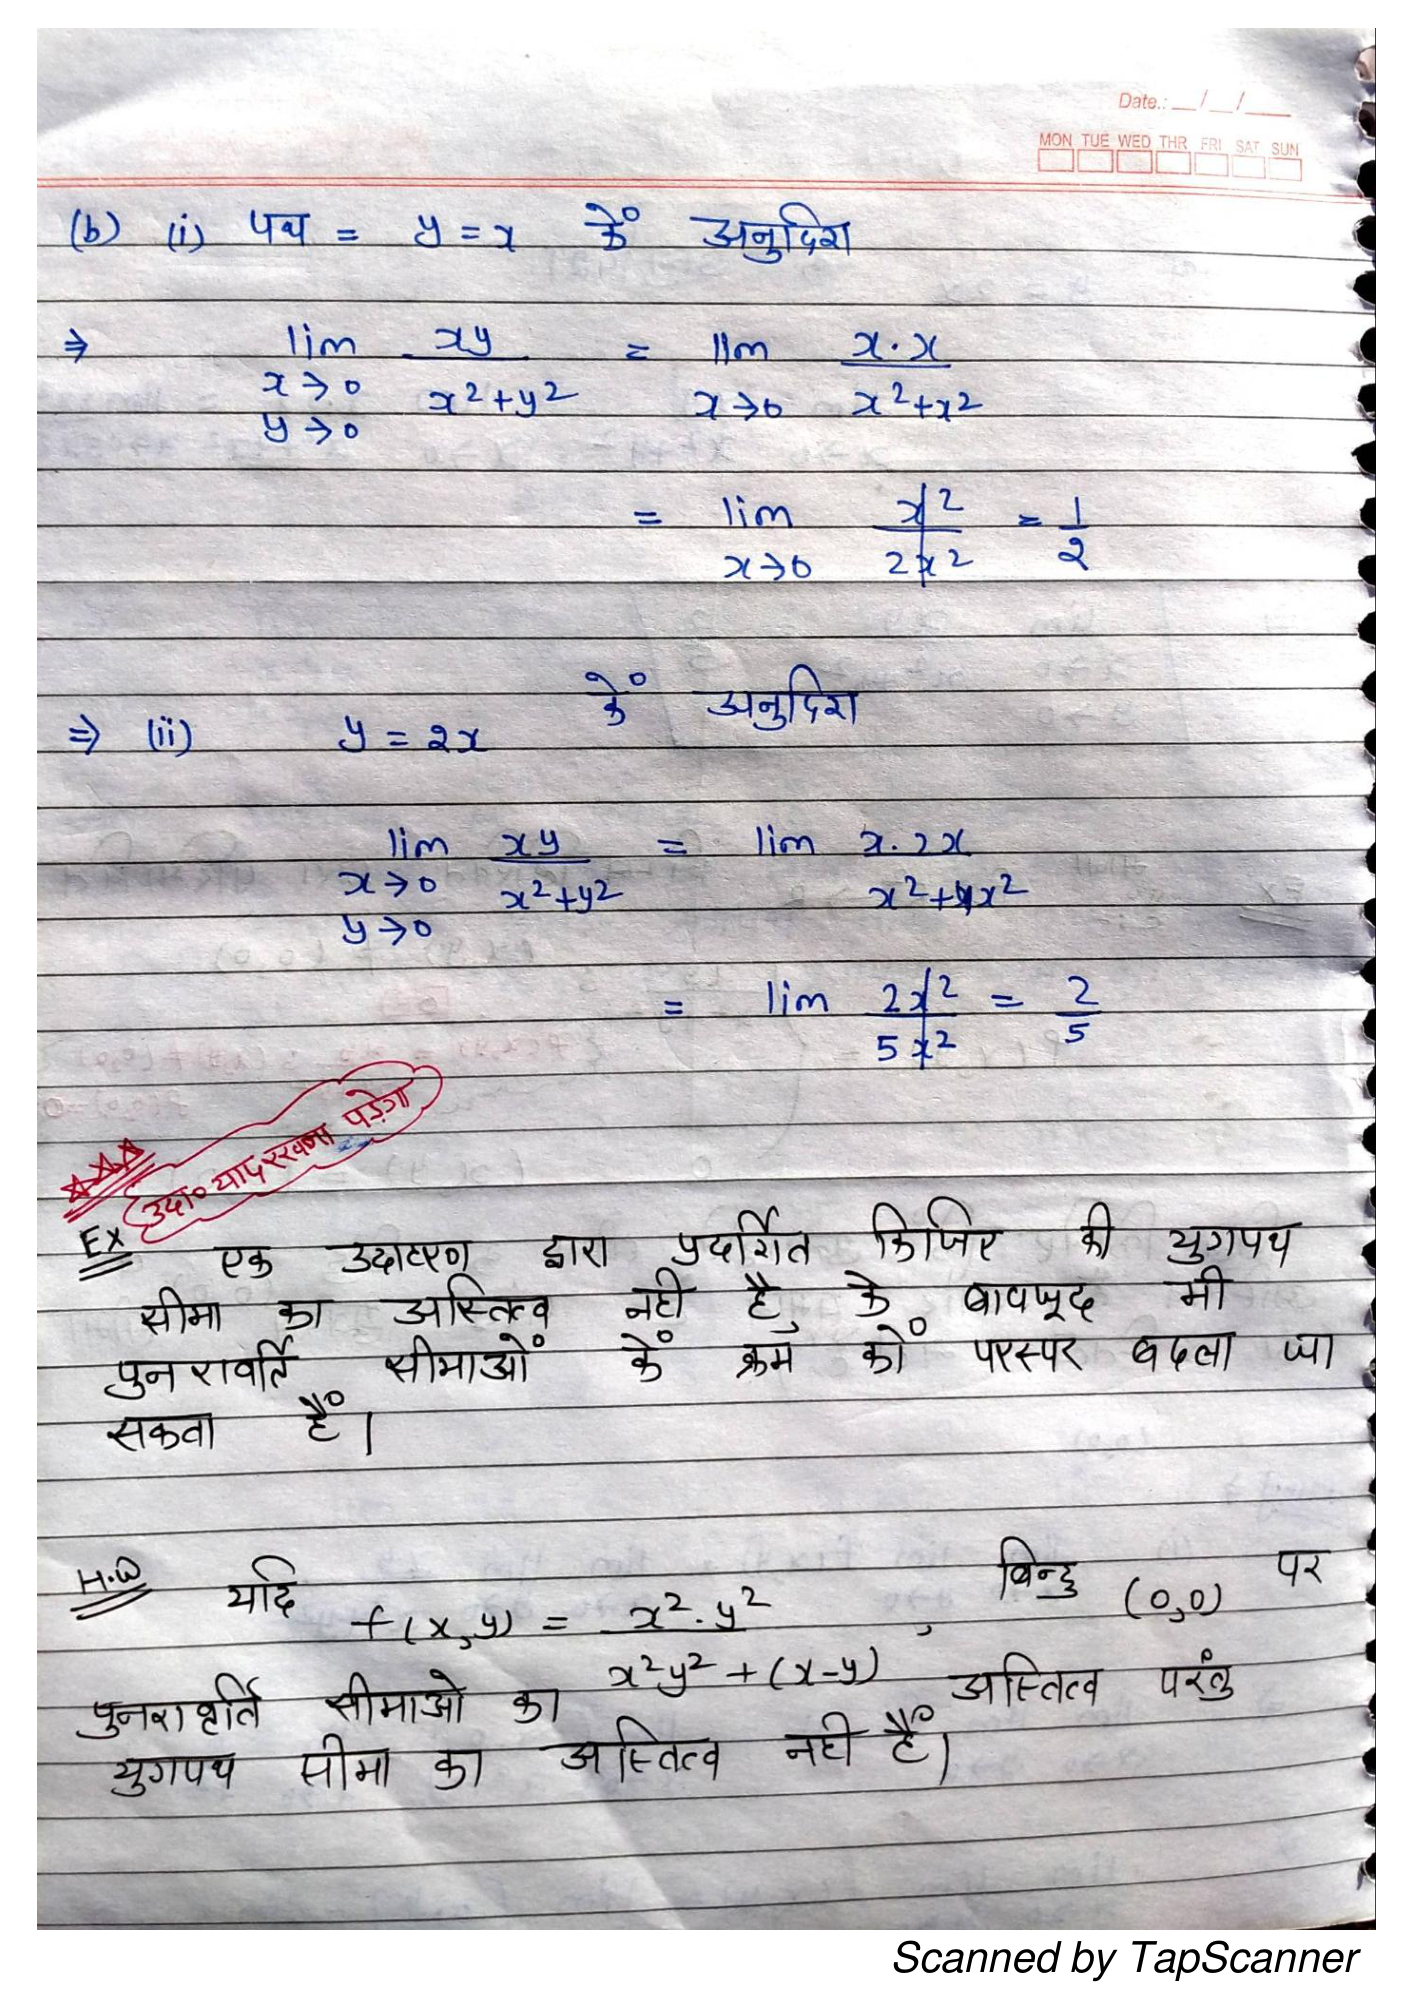 Date.: __/__/___
MON TUE WED THR FRI SAT SUN
(b) (i) पथ = y = x कें अनुदिश
⇒ lim xy / x²+y² = lim x·x / x²+x²
x→0 x→0
y→0
= lim x² / 2x² = 1/2
x→0
⇒ (ii) y = 2x कें अनुदिश
lim xy / x²+y² = lim x·2x / x²+4x²
x→0
y→0
= lim 2x² / 5x² = 2/5
उदा० याद रखना पड़ेगा
EX एक उदाहरण द्वारा प्रदर्शित किजिए की युगपथ
सीमा का अस्तित्व नही है, के बावजूद भी
पुनरावर्ति सीमाओं कें क्रम कों परस्पर बदला जा
सकता हैं।
H.W यदि f(x,y) = x²·y² / x²y² + (x-y) , बिन्दु (0,0) पर
पुनरावृर्ति सीमाओ का अस्तित्व परंतु
युगपथ सीमा का अस्तित्व नही हैं।
Scanned by TapScanner